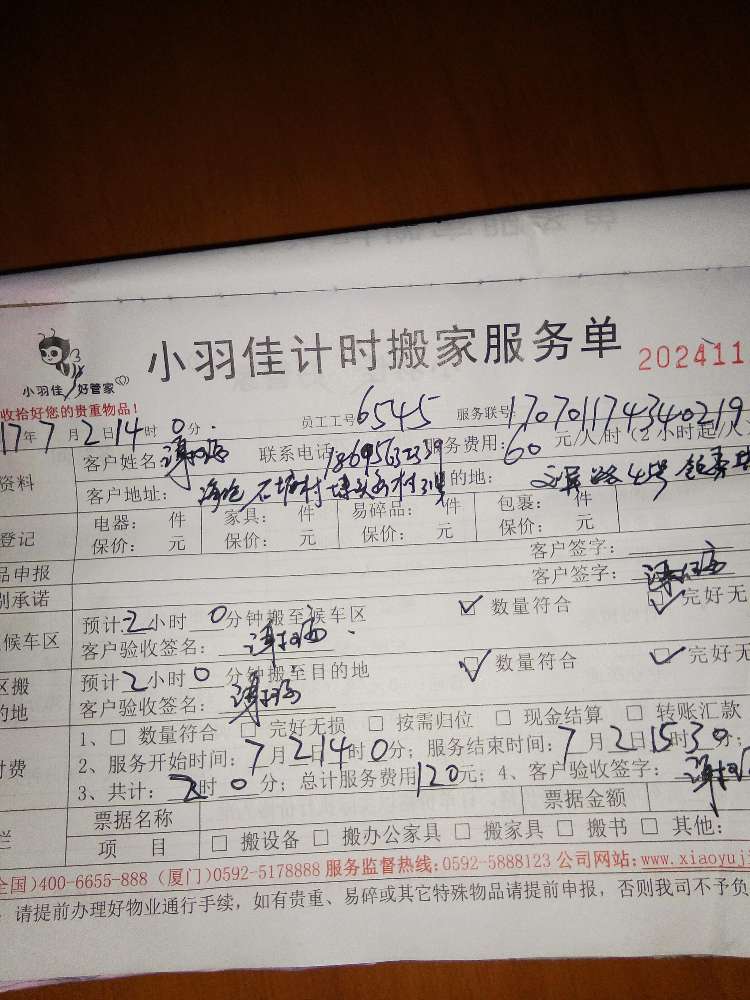 小羽佳计时搬家服务单 202411
小羽佳 好管家
收拾好您的贵重物品！
17年7月2日14时0分 员工工号6545 服务联号:170701174340219
资料 客户姓名: 联系电话 服务费用:60元/人/时（2小时起/人
客户地址: 石塘村 的地:
登记 电器: 件 家具: 件 易碎品: 件 包裹: 件
保价: 元 保价: 元 保价: 元 保价: 元
客户签字:
品申报 客户签字:
别承诺
候车区 预计:2小时0分钟搬至候车区 ☑ 数量符合 ☑ 完好无
客户验收签名:
区搬 预计2小时0分钟搬至目的地 ☑ 数量符合 ☑ 完好无
的地 客户验收签名:
付费 1、□ 数量符合 □ 完好无损 □ 按需归位 □ 现金结算 □ 转账汇款
2、服务开始时间:7月2日14时0分; 服务结束时间:7月2日15时30分;
3、共计:2时0分; 总计服务费用120元; 4、客户验收签字:
票据名称 票据金额
栏 项 目 □ 搬设备 □ 搬办公家具 □ 搬家具 □ 搬书 □ 其他:
全国)400-6655-888 (厦门)0592-5178888 服务监督热线:0592-5888123 公司网站:www.xiaoyuji
请提前办理好物业通行手续，如有贵重、易碎或其它特殊物品请提前申报，否则我司不予负